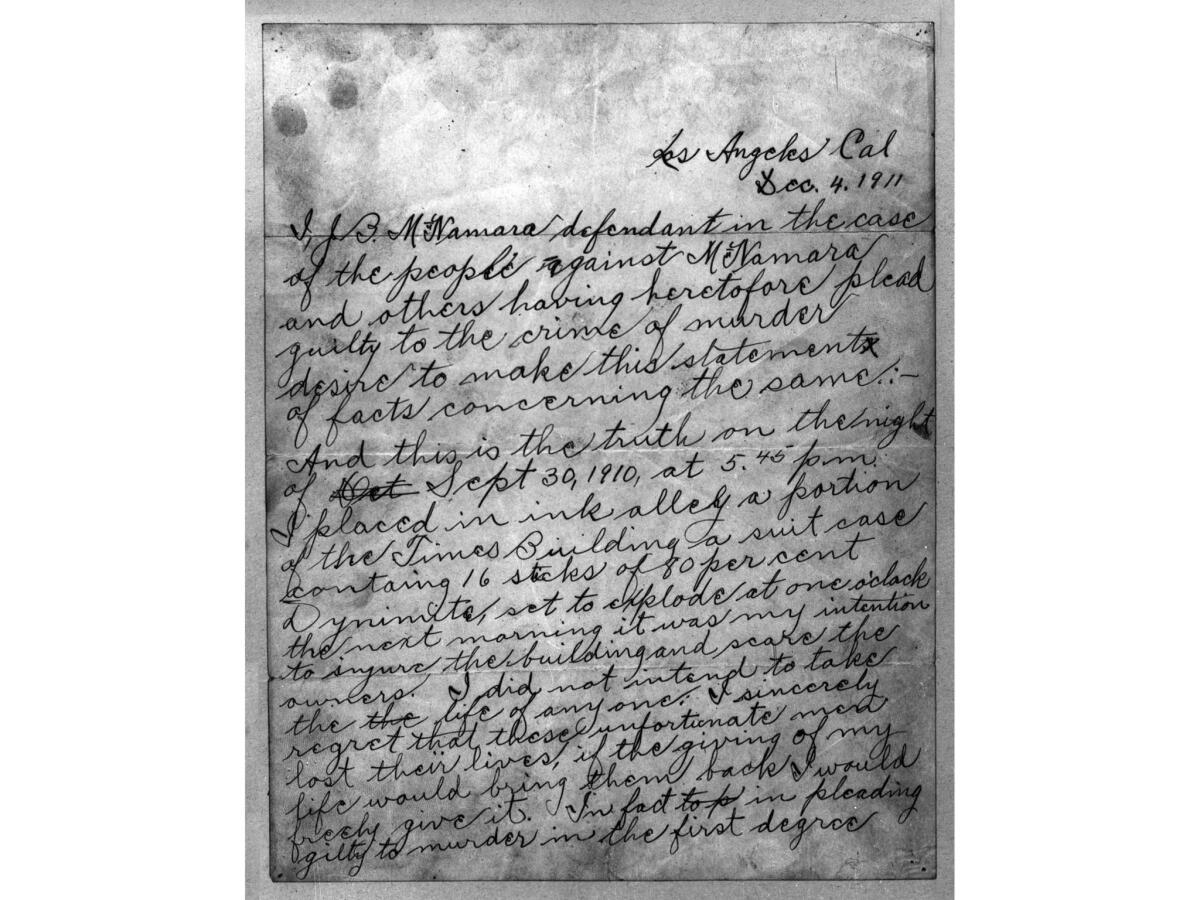 Los Angeles Cal
Dec. 4. 1911
I, J. B. McNamara defendant in the case
of the people against McNamara
and others having heretofore plead
guilty to the crime of murder
desire to make this statement
of facts concerning the same.:-
And this is the truth on the night
of Oct Sept 30, 1910, at 5.45 p.m.
I placed in ink alley a portion
of the Times Building a suit case
containg 16 sticks of 80 per cent
Dynimite, set to explode at one o'clock
the next morning it was my intention
to injure the building and scare the
owners. I did not intend to take
the the life of any one. I sincerely
regret that these unfortunate men
lost their lives, if the giving of my
life would bring them back I would
freely give it. In fact to in pleading
gilty to murder in the first degree